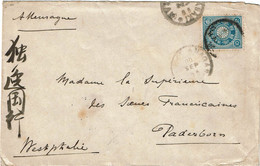 Allemagne
独逸国行
Madame la Supérieure
des Sœurs Franciscaines
Paderborn
Westphalie